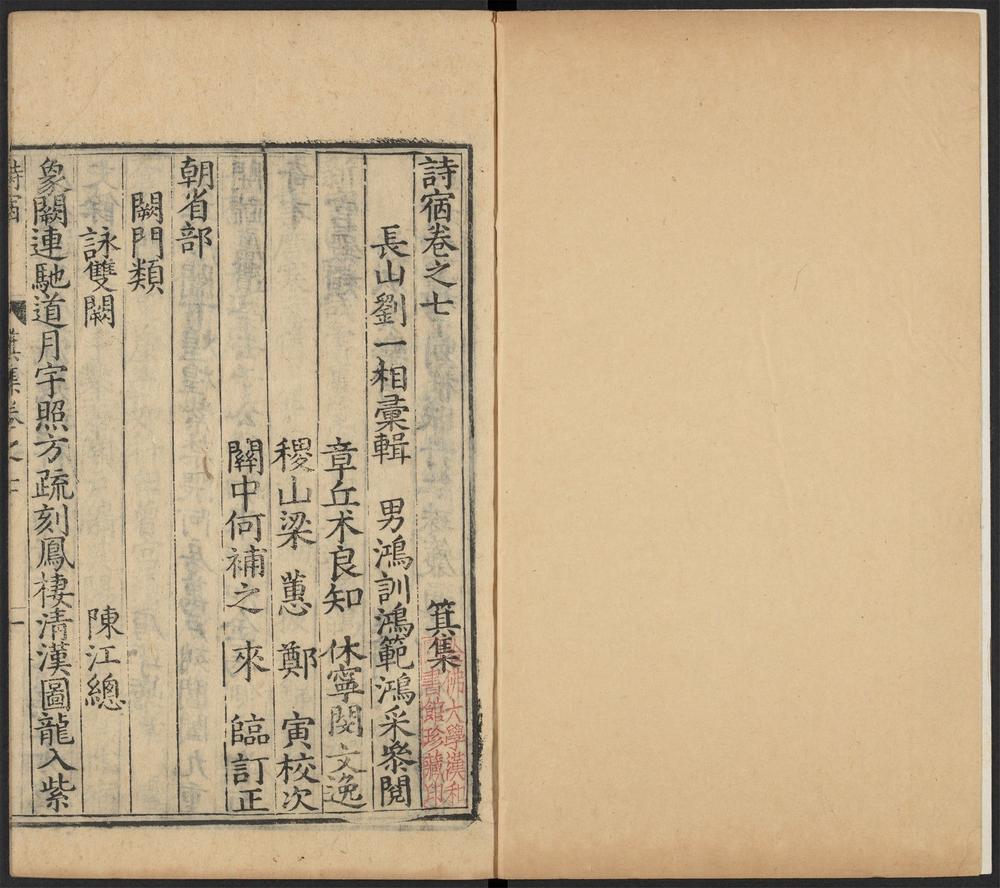 詩宿卷之七 箕集
長山劉一相彙輯 男鴻訓鴻範鴻采叅閱
章丘术良知 休寧閔文逸
稷山梁蕙 鄭寅校次
關中何補之 來臨訂正
朝省部
闕門類
詠雙闕 陳江總
象闕連馳道月宇照方疏刻鳳棲清漢圖龍入紫
詩宿 箕集卷之七 一
哈佛大學漢和
圖書館珍藏印